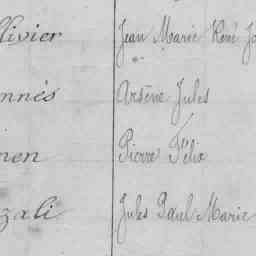 llivier Jean Marie René Jo
nnés Arsène Jules
nen Pierre Félix
zali Jules Paul Marie